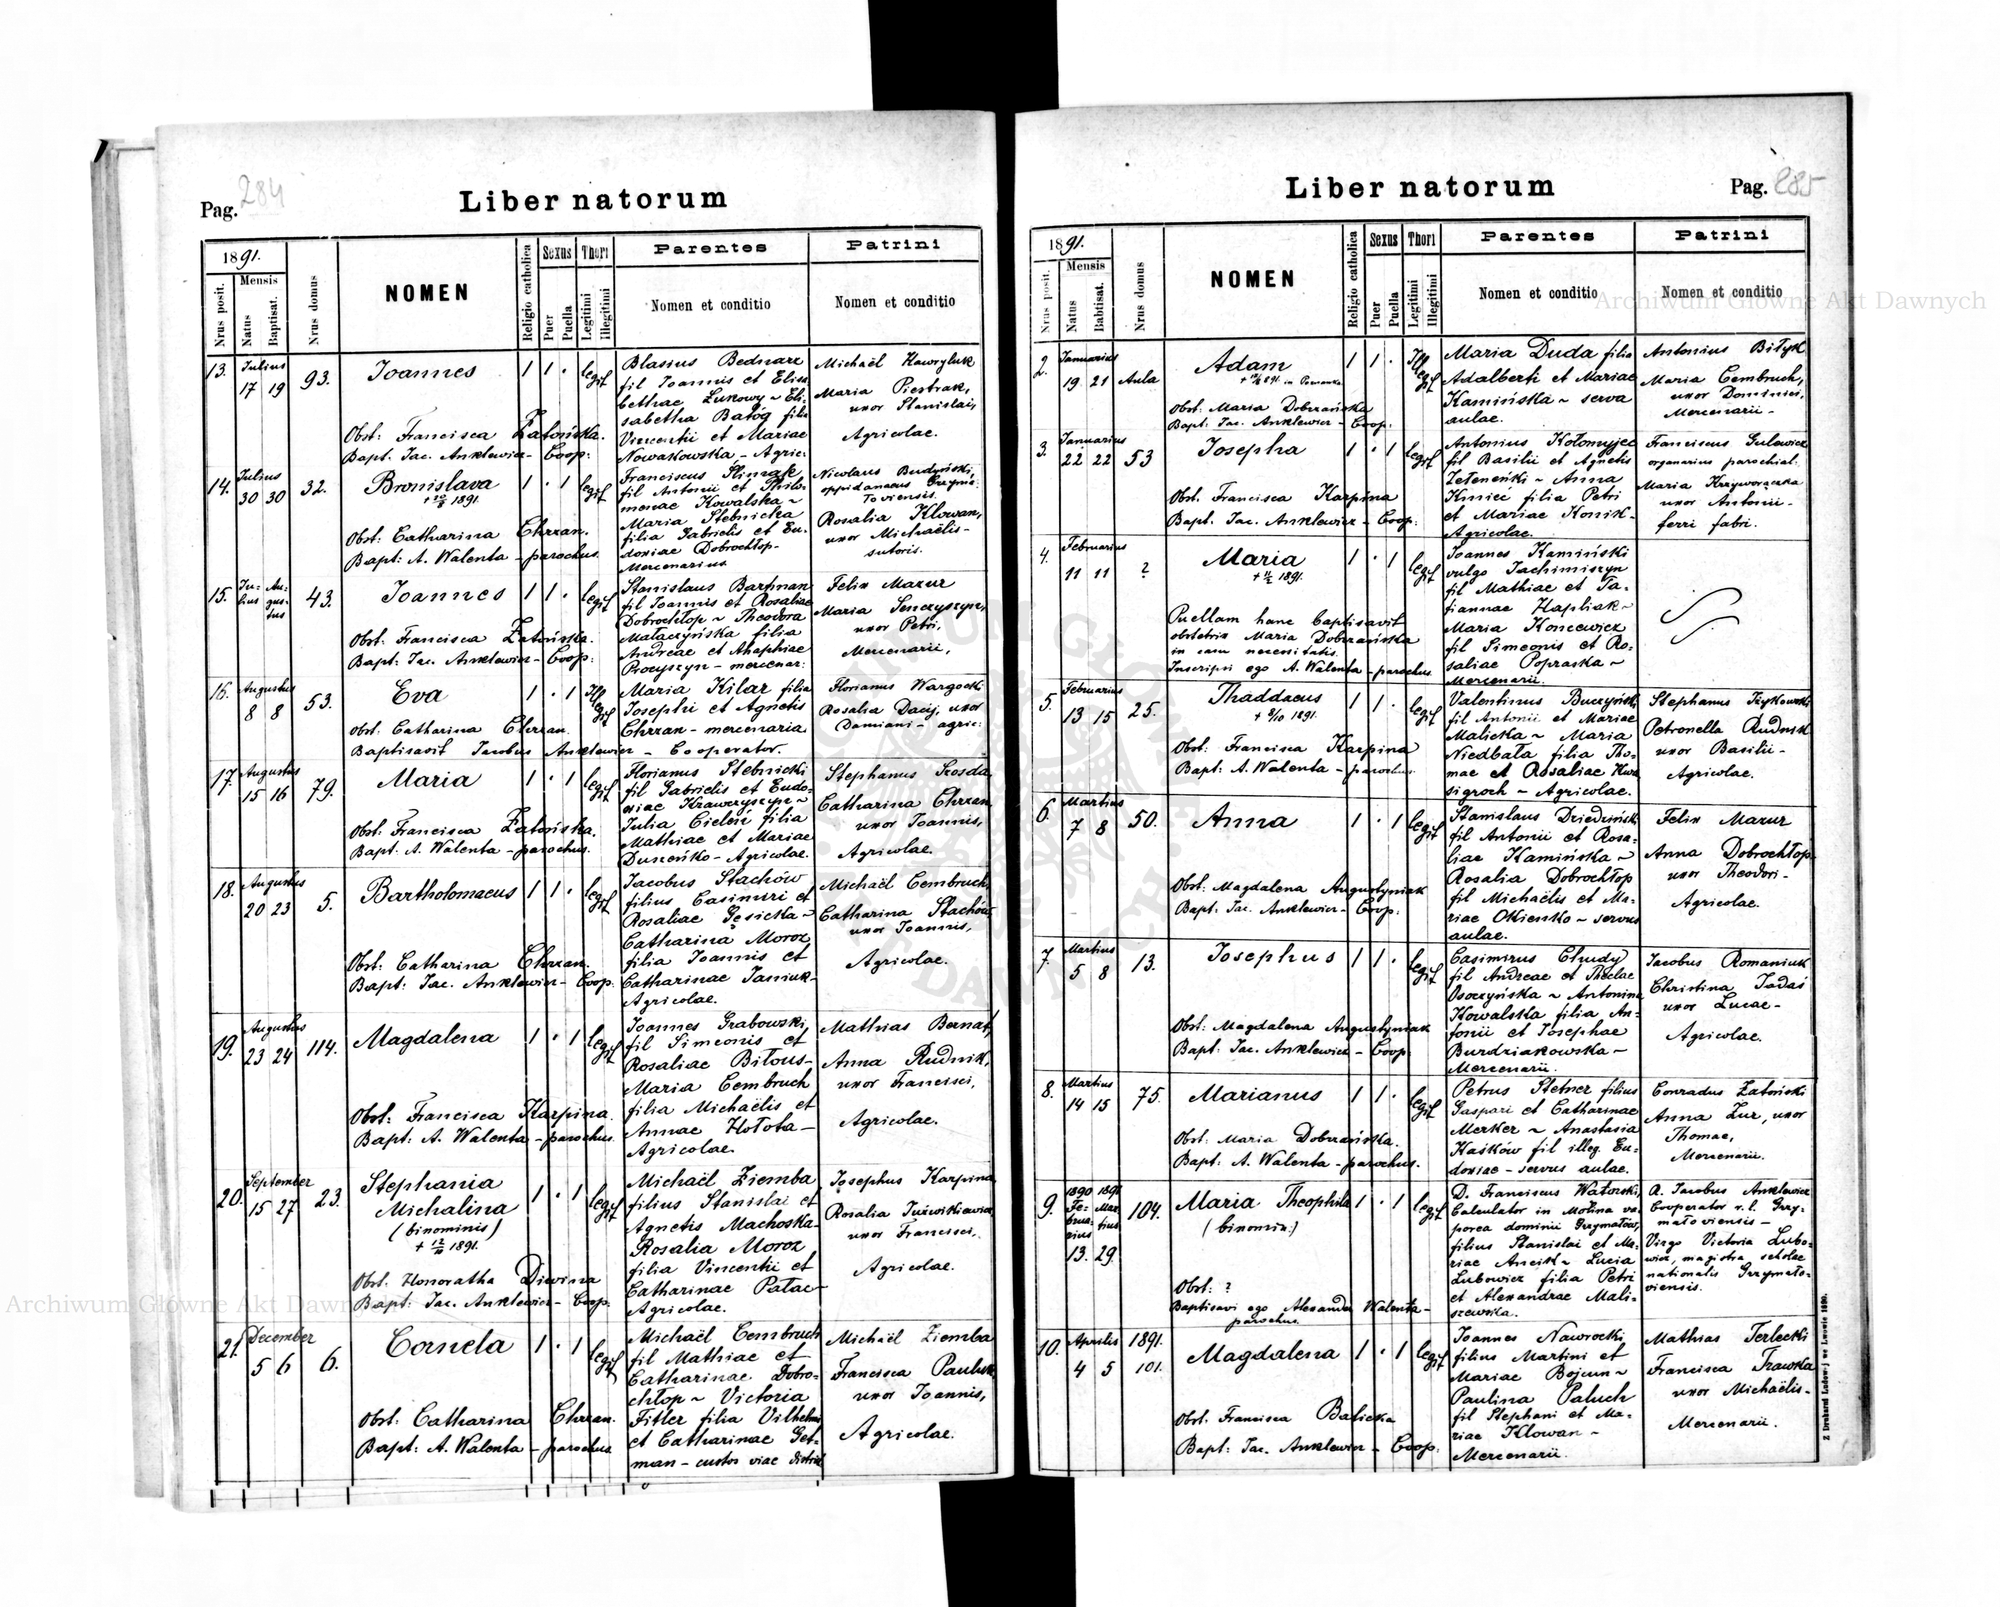 Pag. 284
Liber natorum
1891.
Nrus posit.
Mensis
Natus
Baptisat.
Nrus domus
NOMEN
Religio catholica
Sexus
Puer
Puella
Thori
Legitimi
Illegitimi
Parentes
Nomen et conditio
Patrini
Nomen et conditio
13. Julius 17 19 93. Joannes 1 1 . legit
Obst: Francisca Zatońska.
Bapt: Jac. Anklewicz - Coop:
Blasius Bednarz
fil Joannis et Elisa
bethae Lukowy ~ Eli
sabetha Batóg filia
Vincentii et Mariae
Nowakowska - Agric:
Michaël Hawryluk
Maria Piestrak,
uxor Stanislai,
Agricolae.
14. Julius 30 30 32. Bronislava 1 . 1 legit
1891.
Obst: Catharina Chrzan.
Bapt: A. Walenta - parochus.
Franciscus Ślimak
fil Antonii et Philo-
menae Kowalska ~
Maria Stebnicka
filia Gabrielis et Eu-
doxiae Dobrochłop -
Mercenarius
Nicolaus Budyński,
oppidanaeus Grzyma-
loviensis.
Rosalia Klowan,
uxor Michaëlis -
sutoris.
15. Ju- Au-
lius gus-
tus
43. Joannes 1 1 . legit
Obst: Francisca Zatońska.
Bapt: Jac. Anklewicz - Coop:
Stanislaus Bartman
fil Joannis et Rosaliae
Dobrochłop ~ Theodora
Mataczyńska filia
Andreae et Ahaphiae
Procyszyn - mercenar:
Felix Mazur
Maria Senczyszyn,
uxor Petri,
Mercenarii,
16. Augustus 8 8 53. Eva 1 . 1 Illegit
Obst: Catharina Chrzan.
Baptisavit Jacobus Anklewicz - Cooperator.
Maria Kilar filia
Josephi et Agnetis
Chrzan - mercenaria
Florianus Wargocki
Rosalia Dacij, uxor
Damiani - agric:
17. Augustus 15 16 79. Maria 1 . 1 legit
Obst: Francisca Zatońska.
Bapt: A. Walenta - parochus.
Florianus Stebnicki
fil Gabrielis et Eudo-
xiae Krawczyszyn ~
Julia Cieleń filia
Mathiae et Mariae
Duszeńko - Agricolae.
Stephanus Szosda,
Catharina Chrzan,
uxor Joannis,
Agricolae.
18. Augustus 20 23 5. Bartholomaeus 1 1 . legit
Obst: Catharina Chrzan.
Bapt: Jac. Anklewicz - Coop:
Jacobus Stachów
filius Casimiri et
Rosaliae Gęsicka ~
Catharina Moroz
filia Joannis et
Catharinae Jasniuk -
Agricolae.
Michaël Cembruch,
Catharina Stachów
uxor Joannis,
Agricolae.
19. Augustus 23 24 114. Magdalena 1 . 1 legit
Obst: Francisca Karpina.
Bapt: A. Walenta - parochus.
Joannes Grabowski,
fil Simeonis et
Rosaliae Bilous -
Maria Cembruch
filia Michaëlis et
Annae Hołota -
Agricolae.
Mathias Bernat,
Anna Rudnik,
uxor Francisci,
Agricolae.
20. September 15 27 23. Stephania
Michalina
(binominis)
1891.
1 . 1 legit
Obst. Honoratha Diwina
Bapt: Jac. Anklewicz - Coop.
Michaël Ziemba
filius Stanislai et
Agnetis Machoska -
Rosalia Moroz
filia Vincentii et
Catharinae Pałac -
Agricolae.
Josephus Karpina
uxor Francisci,
Agricolae.
21. December 5 6 6. Cornela 1 . 1 legit
Obst: Catharina Chrzan.
Bapt: A. Walenta - parochus
Michaël Cembruch
fil Mathiae et
Catharinae Dobro-
chłop ~ Victoria
Fitler filia Vilhelmi
et Catharinae Get-
man - custos viae district
Michaël Ziemba
Francisca Pauluk,
uxor Joannis,
Agricolae.
Liber natorum
Pag. 285
1891.
Nrus posit.
Mensis
Natus
Babtisat.
Nrus domus
NOMEN
Religio catholica
Sexus
Puer
Puella
Thori
Legitimi
Illegitimi
Parentes
Nomen et conditio
Patrini
Nomen et conditio
2. Januarius 19. 21 Aula Adam 1 1 . Illegit
Obst: Maria Dobrzańska
Bapt: Jac. Anklewicz - Coop:
Maria Duda filia
Adalberti et Mariae
Kamińska ~ serva
aulae.
Antonius Bityk
Maria Cembruch,
uxor Dominici,
Mercenarii -
3. Januarius 22 22 53 Josepha 1 . 1 legit
Obst. Francisca Karpina
Bapt. Jac. Anklewicz - Coop:
Antonius Kołomyjec
fil Basilii et Agnetis
Zeteneńki ~ Anna
Kmieć filia Petri
et Mariae Konik -
Agricolae.
Franciscus Gulewicz
organarius parochial:
Maria Krzyworączka
uxor Antonii -
ferri fabri.
4. Februarius 11 11 ? Maria 1 . 1 legit
1891.
Puellam hanc baptisavit
obstetrix Maria Dobrzańska
in casu necessitatis.
Inscripsi ego A. Walenta - parochus.
Joannes Kamiński
vulgo Jachimiszyn
fil Mathiae et Ta-
tiannae Hapliak ~
Maria Koncewicz
fil Simeonis et Ro-
saliae Popraska ~
Mercenarii.
5. Februarius 13 15 25. Thaddaeus 1 1 . legit
+ 8/10 1891.
Obst: Francisca Karpina
Bapt: A. Walenta - parochus.
Valentinus Buczyński
fil Antonii et Mariae
Malicka ~ Maria
Niedbała filia Tho-
mae et Rosaliae Kwa
sigroch - Agricolae.
Stephanus Fıykowski
Petronella Rudnik
uxor Basilii -
Agricolae.
6. Martius 7 8 50. Anna 1 . 1 legit
Obst: Magdalena Augustyniak
Bapt: Jac. Anklewicz - Coop:
Stanislaus Dziedziński
fil Antonii et Rosa-
liae Kamińska ~
Rosalia Dobrochłop
fil Michaëlis et Ma-
riae Okienko ~ servus
aulae.
Felix Mazur
Anna Dobrochłop
uxor Theodori -
Agricolae.
7. Martius 5 8 13. Josephus 1 1 . legit
Obst: Magdalena Augustyniak
Bapt: Jac. Anklewicz - Coop:
Casimirus Chudy
fil Andreae et Theclae
Osoczyńska ~ Antonina
Kowalska filia An-
tonii et Josephae
Burdziakowska -
Mercenarii.
Jacobus Romaniuk
Christina Jadaś
uxor Lucae -
Agricolae.
8. Martius 14 15 75. Marianus 1 1 . legit
Obst: Maria Dobrzańska.
Bapt: A. Walenta - parochus.
Petrus Stetner filius
Gaspari et Catharinae
Merker ~ Anastasia
Kaśków fil illeg. Eu-
doxiae - servus aulae.
Conradus Zatoński
Anna Zur, uxor
Thomae,
Mercenarii.
9. 1890 1891
Fe- Mar-
brua- tius
rius
13. 29.
104. Maria Theophila 1 . 1 legit
(binomin:)
Obst: ?
Baptisavi ego Alexander Walenta -
parochus.
D. Franciscus Watorski,
Calculator in Molina va-
porea dominii Grzymałów,
filius Stanislai et Ma-
riae Ancisk ~ Lucia
Lubowicz filia Petri
et Alexandrae Mali-
szewska.
A. Jacobus Anklewicz
Cooperator r. l. Grzy-
mało viensis -
Virgo Victoria Lubo-
wicz, magistra scholae
nationalis Grzymało-
viensis.
10. Aprilis 4 5 1891. 101. Magdalena 1 . 1 legit
Obst: Francisca Balicka
Bapt: Jac. Anklewicz - Coop:
Joannes Nawrocki
filius Martini et
Mariae Bojcun ~
Paulina Paluch
fil Stephani et Ma-
riae Klowan ~
Mercenarii.
Mathias Terlecki
Francisca Trawska
uxor Michaëlis -
Mercenarii.
Z Drukarni Ludowej we Lwowie 1890.
Archiwum Główne Akt Dawnych
Archiwum Główne Akt Dawnych